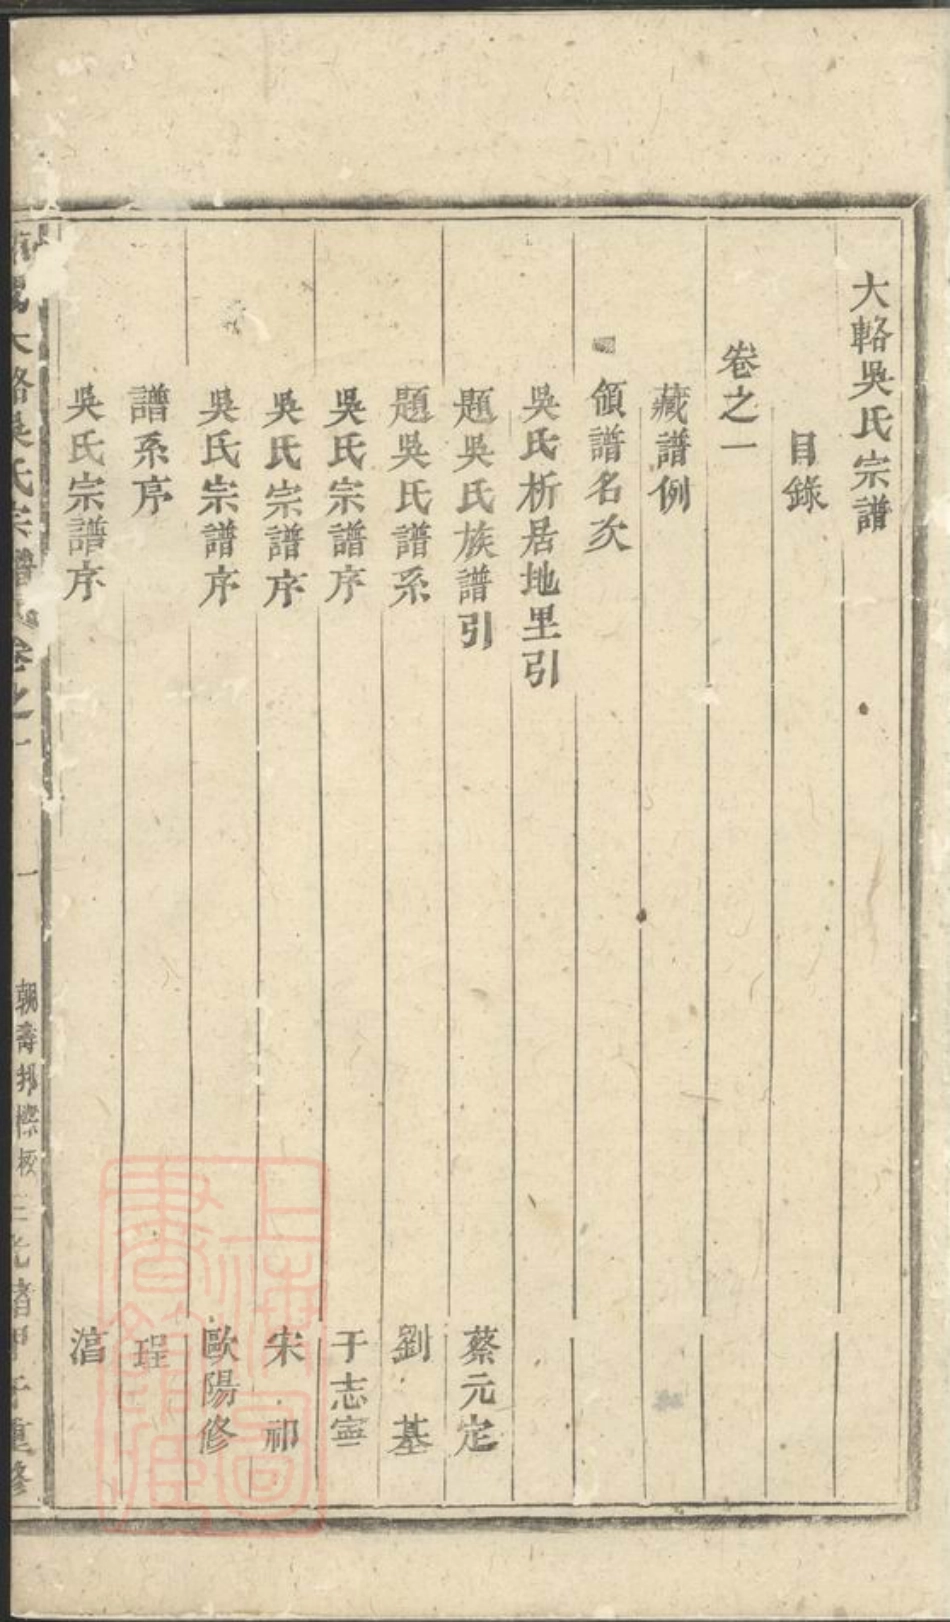 大輅吳氏宗譜
目錄
卷之一
藏譜例
領譜名次
吳氏析居地里引
題吳氏族譜引 蔡元定
題吳氏譜系 劉基
吳氏宗譜序 于志寧
吳氏宗譜序 宋祁
吳氏宗譜序 歐陽修
譜系序 珵
吳氏宗譜序 㵆
大輅吳氏宗譜 卷之一 一 重修
上海圖書館藏